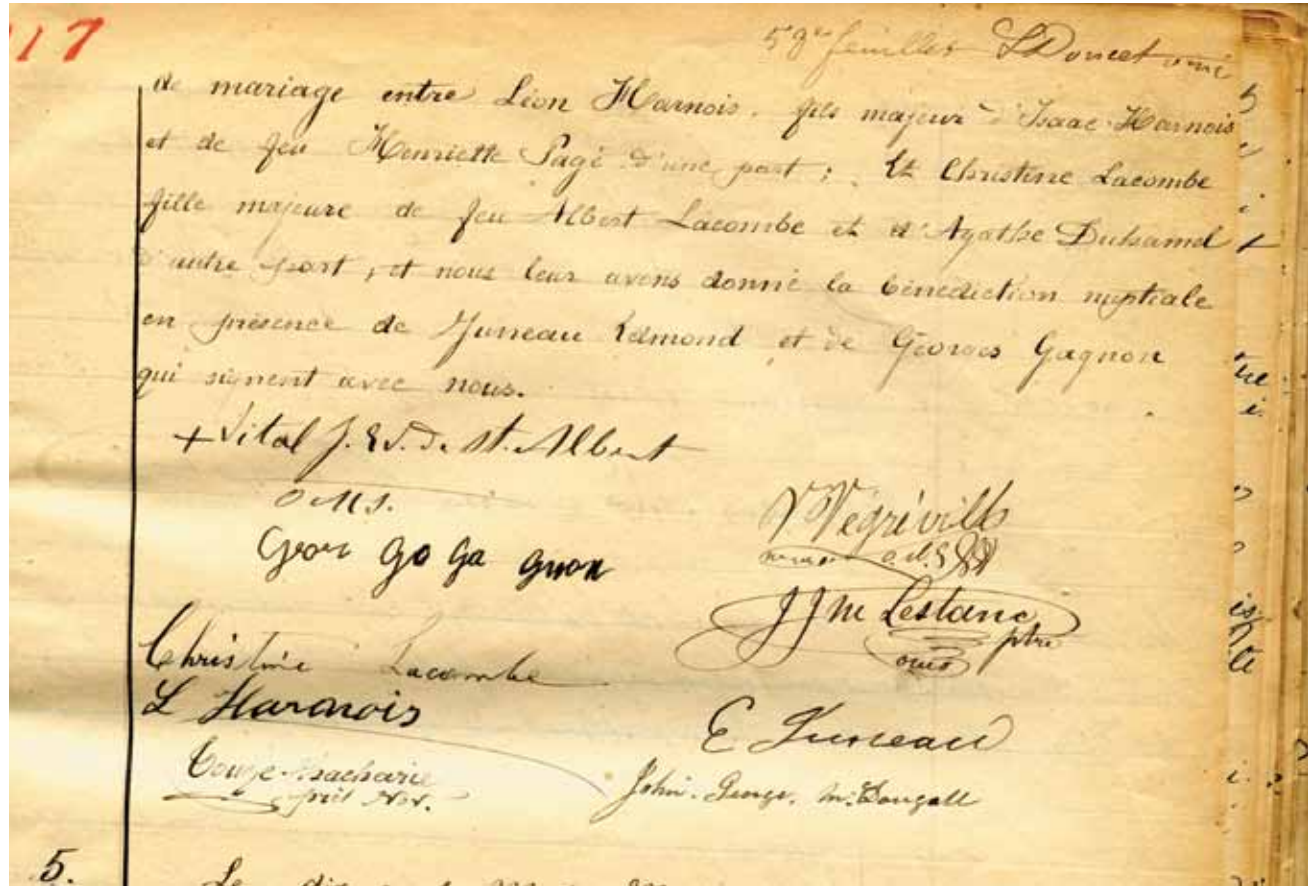 17
59e feuillet LDoucet omi
de mariage entre Léon Harnois, fils majeur d'Isaac Harnois
et de feu Henriette Pagé d'une part ; Et Christine Lacombe
fille majeure de feu Albert Lacombe et d'Agathe Duhamel
d'autre part, et nous leur avons donné la bénédiction nuptiale
en présence de Juneau Edmond et de Georges Gagnon
qui signent avec nous.
+ Vital J. Ev. de St. Albert
O.M.I.
Geor go ga gnon
V Végréville
o.m.i.
JJM Lestanc
ptre
omi
Christine Lacombe
L Harnois
E Juneau
Zacharie
John. George. McDougall
5.
Le